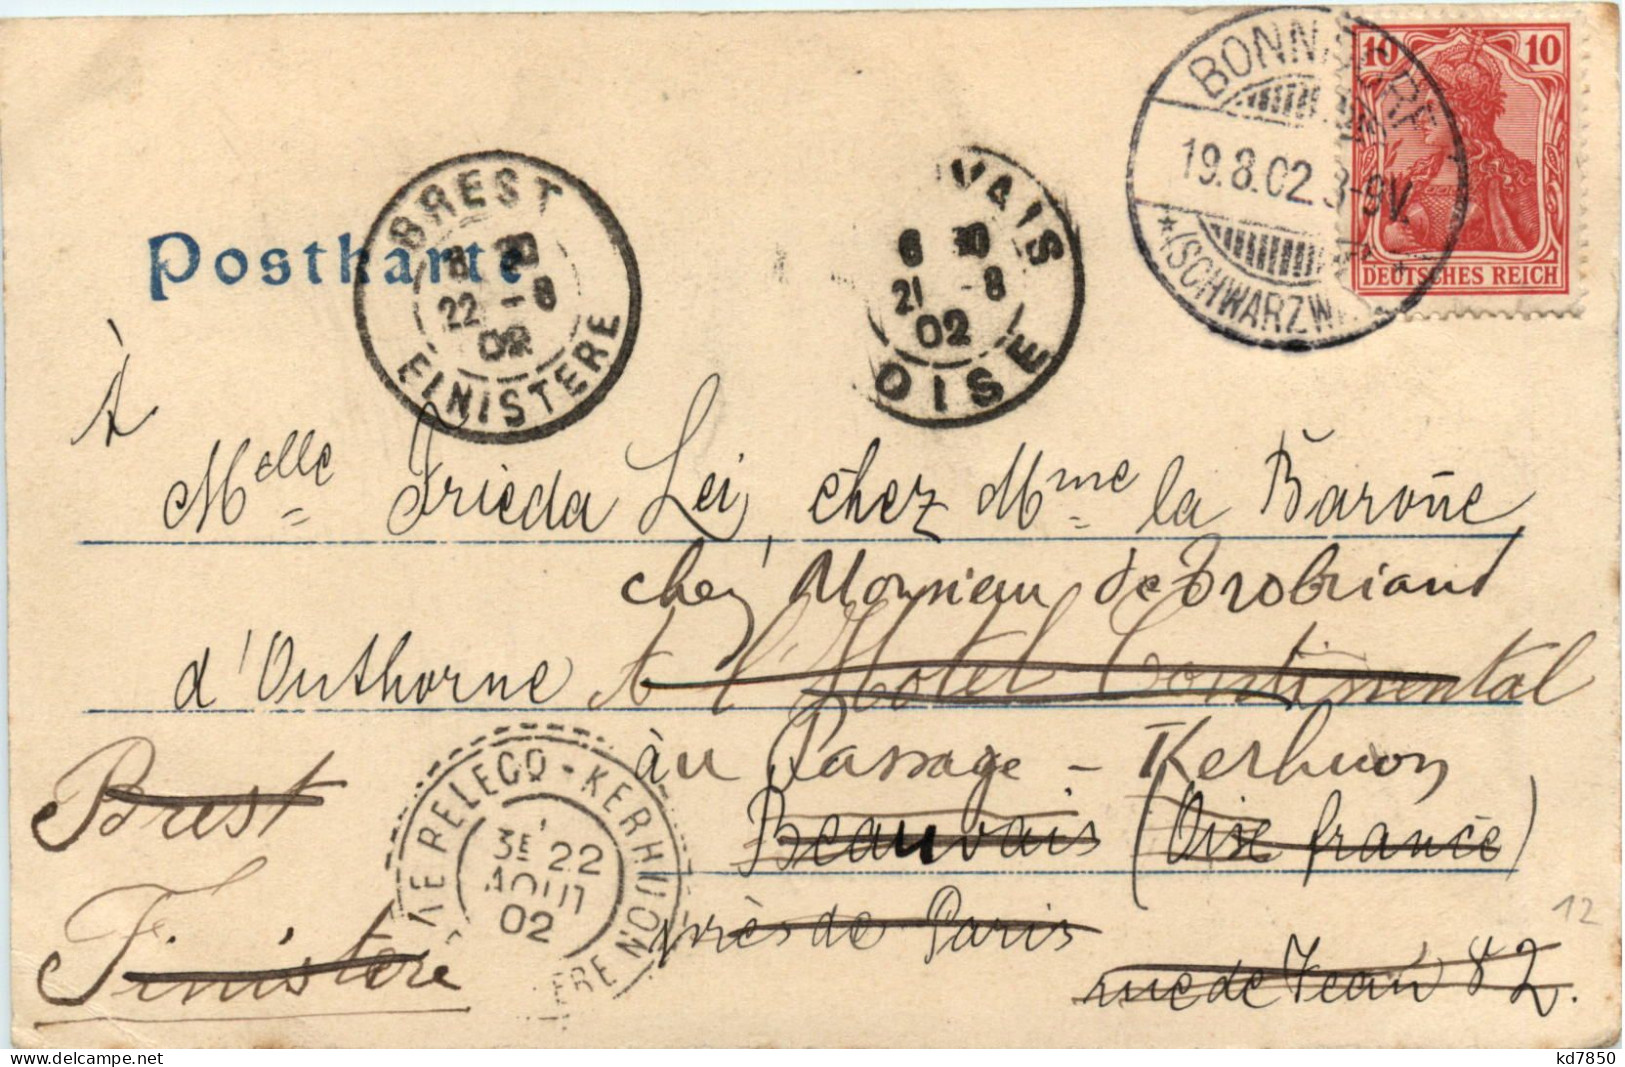 BONNDORF
19.8.02.8-9V.
*(SCHWARZW.
10 10
DEUTSCHES REICH
BREST
22 - 8
02
FINISTERE
VAIS
6 30
21 - 8
02
OISE
Postkarte
À
Melle Frieda Lei, chez Mme la Baroñe
chez Monsieur de Trobriand
d'Outhorne à l'Hotel Continental
au Passage - Kerhuon
Brest
Beauvais (Oise france)
LE RELECQ - KERHUON
3E 22
AOUT
02
Finistere
près de Paris
rue de Jean 82.
12
kd7850